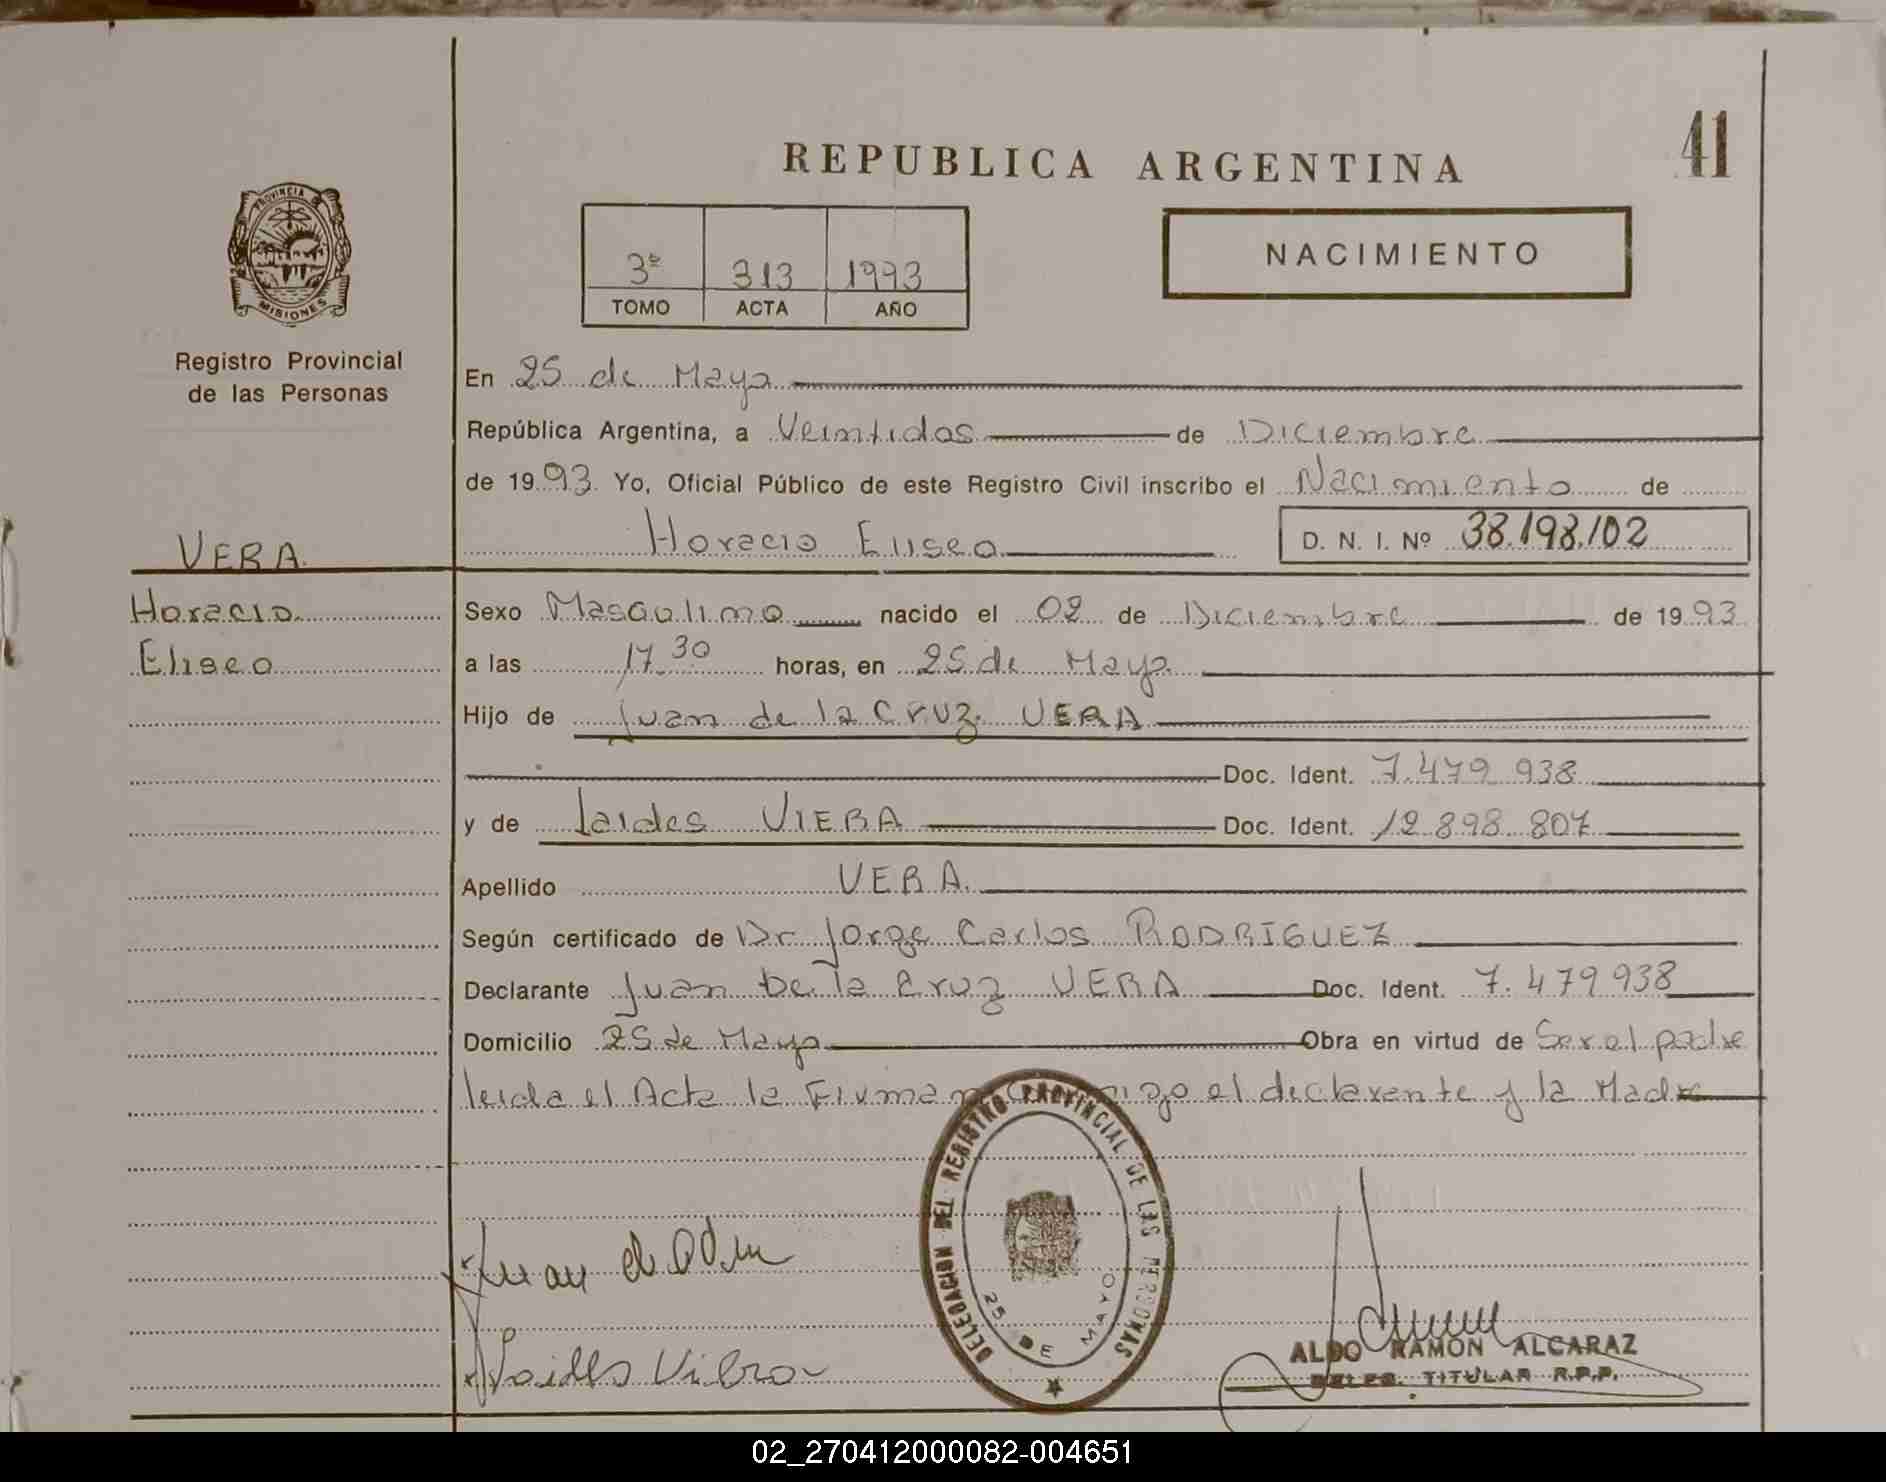 41
REPUBLICA ARGENTINA
PROVINCIA
MISIONES
3º 313 1993
TOMO ACTA AÑO
NACIMIENTO
Registro Provincial
de las Personas
En 25 de Mayo
República Argentina, a Veintidos de Diciembre
de 1993 Yo, Oficial Público de este Registro Civil inscribo el Nacimiento de
VERA Horacio Eliseo D. N. I. Nº 38.198.102
Horacio Sexo Masculino nacido el 02 de Diciembre de 1993
Eliseo a las 17 30 horas, en 25 de Mayo
Hijo de Juan de la Cruz VERA
Doc. Ident. 7.479 938
y de Laides VIERA Doc. Ident. 12.898.807
Apellido VERA
Según certificado de Dr Jorge Carlos RODRIGUEZ
Declarante Juan De la Cruz VERA Doc. Ident. 7.479 938
Domicilio 25 de Mayo Obra en virtud de Ser el padre
leida el Acta la Firman el declarante y la Madre
DELEGACION DEL REGISTRO PROVINCIAL DE LAS PERSONAS
25 DE MAYO
ALDO RAMON ALCARAZ
DELEG. TITULAR R.P.P.
02_270412000082-004651